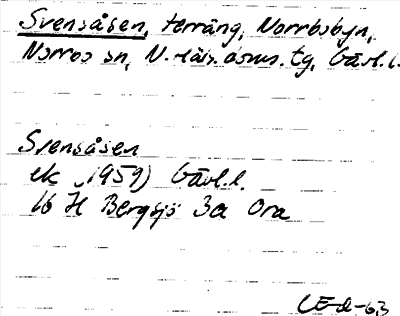 Svensåsen, terräng, Norrbobyn,
Norrbo sn, N. Häls. doms. tg, Gävl.l.
Svensåsen
ek (1959) Gävl.l.
16 H Bergsjö 3a Ora